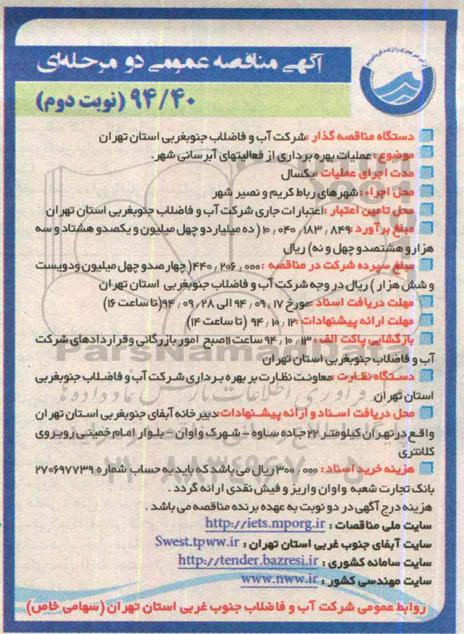 آگهی مناقصه عمومی دو مرحله‌ای
۹۴/۴۰ (نوبت دوم)
دستگاه مناقصه گذار :شرکت آب و فاضلاب جنوبغربی استان تهران
موضوع : عملیات بهره برداری از فعالیتهای آبرسانی شهر.
مدت اجرای عملیات :یکسال
محل اجراء : شهرهای رباط کریم و نصیر شهر
محل تامین اعتبار : اعتبارات جاری شرکت آب و فاضلاب جنوبغربی استان تهران
مبلغ برآورد :۱۰,۰۴۰,۱۸۳,۸۴۹ ( ده میلیارد و چهل میلیون و یکصد و هشتاد و سه
هزار و هشتصد و چهل و نه) ریال
مبلغ سپرده شرکت در مناقصه :۴۴۰,۲۰۶,۰۰۰( چهارصد و چهل میلیون و دویست
و شش هزار ) ریال در وجه شرکت آب و فاضلاب جنوبغربی استان تهران
مهلت دریافت اسناد :مورخ ۹۴,۰۹,۱۷ الی ۹۴,۰۹,۲۸(تا ساعت ۱۶)
مهلت ارائه پیشنهادات :۹۴,۱۰,۱۲ (تا ساعت ۱۴)
بازگشایی پاکت الف : ۹۴,۱۰,۱۳ ساعت ۱۱صبح امور بازرگانی و قراردادهای شرکت
آب و فاضلاب جنوبغربی استان تهران
دستگاه نظارت : معاونت نظارت بر بهره برداری شرکت آب و فاضلاب جنوبغربی
استان تهران
محل دریافت اسناد و ارائه پیشنهادات:دبیرخانه آبفای جنوبغربی استان تهران
واقع در تهران کیلومتر ۲۲ جاده ساوه - شهرک واوان - بلوار امام خمینی روبروی
کلانتری
هزینه خرید اسناد : ۳۰۰,۰۰۰ ریال می باشد که باید به حساب شماره ۲۷۰۶۹۷۷۳۹
بانک تجارت شعبه واوان واریز و فیش نقدی ارائه گردد .
هزینه درج آگهی در دو نوبت به عهده برنده مناقصه می باشد .
سایت ملی مناقصات : http://iets.mporg.ir
سایت آبفای جنوب غربی استان تهران : Swest.tpww.ir
سایت سامانه کشوری : http://tender.bazresi.ir
سایت مهندسی کشور : www.nww.ir
روابط عمومی شرکت آب و فاضلاب جنوب غربی استان تهران (سهامی خاص)